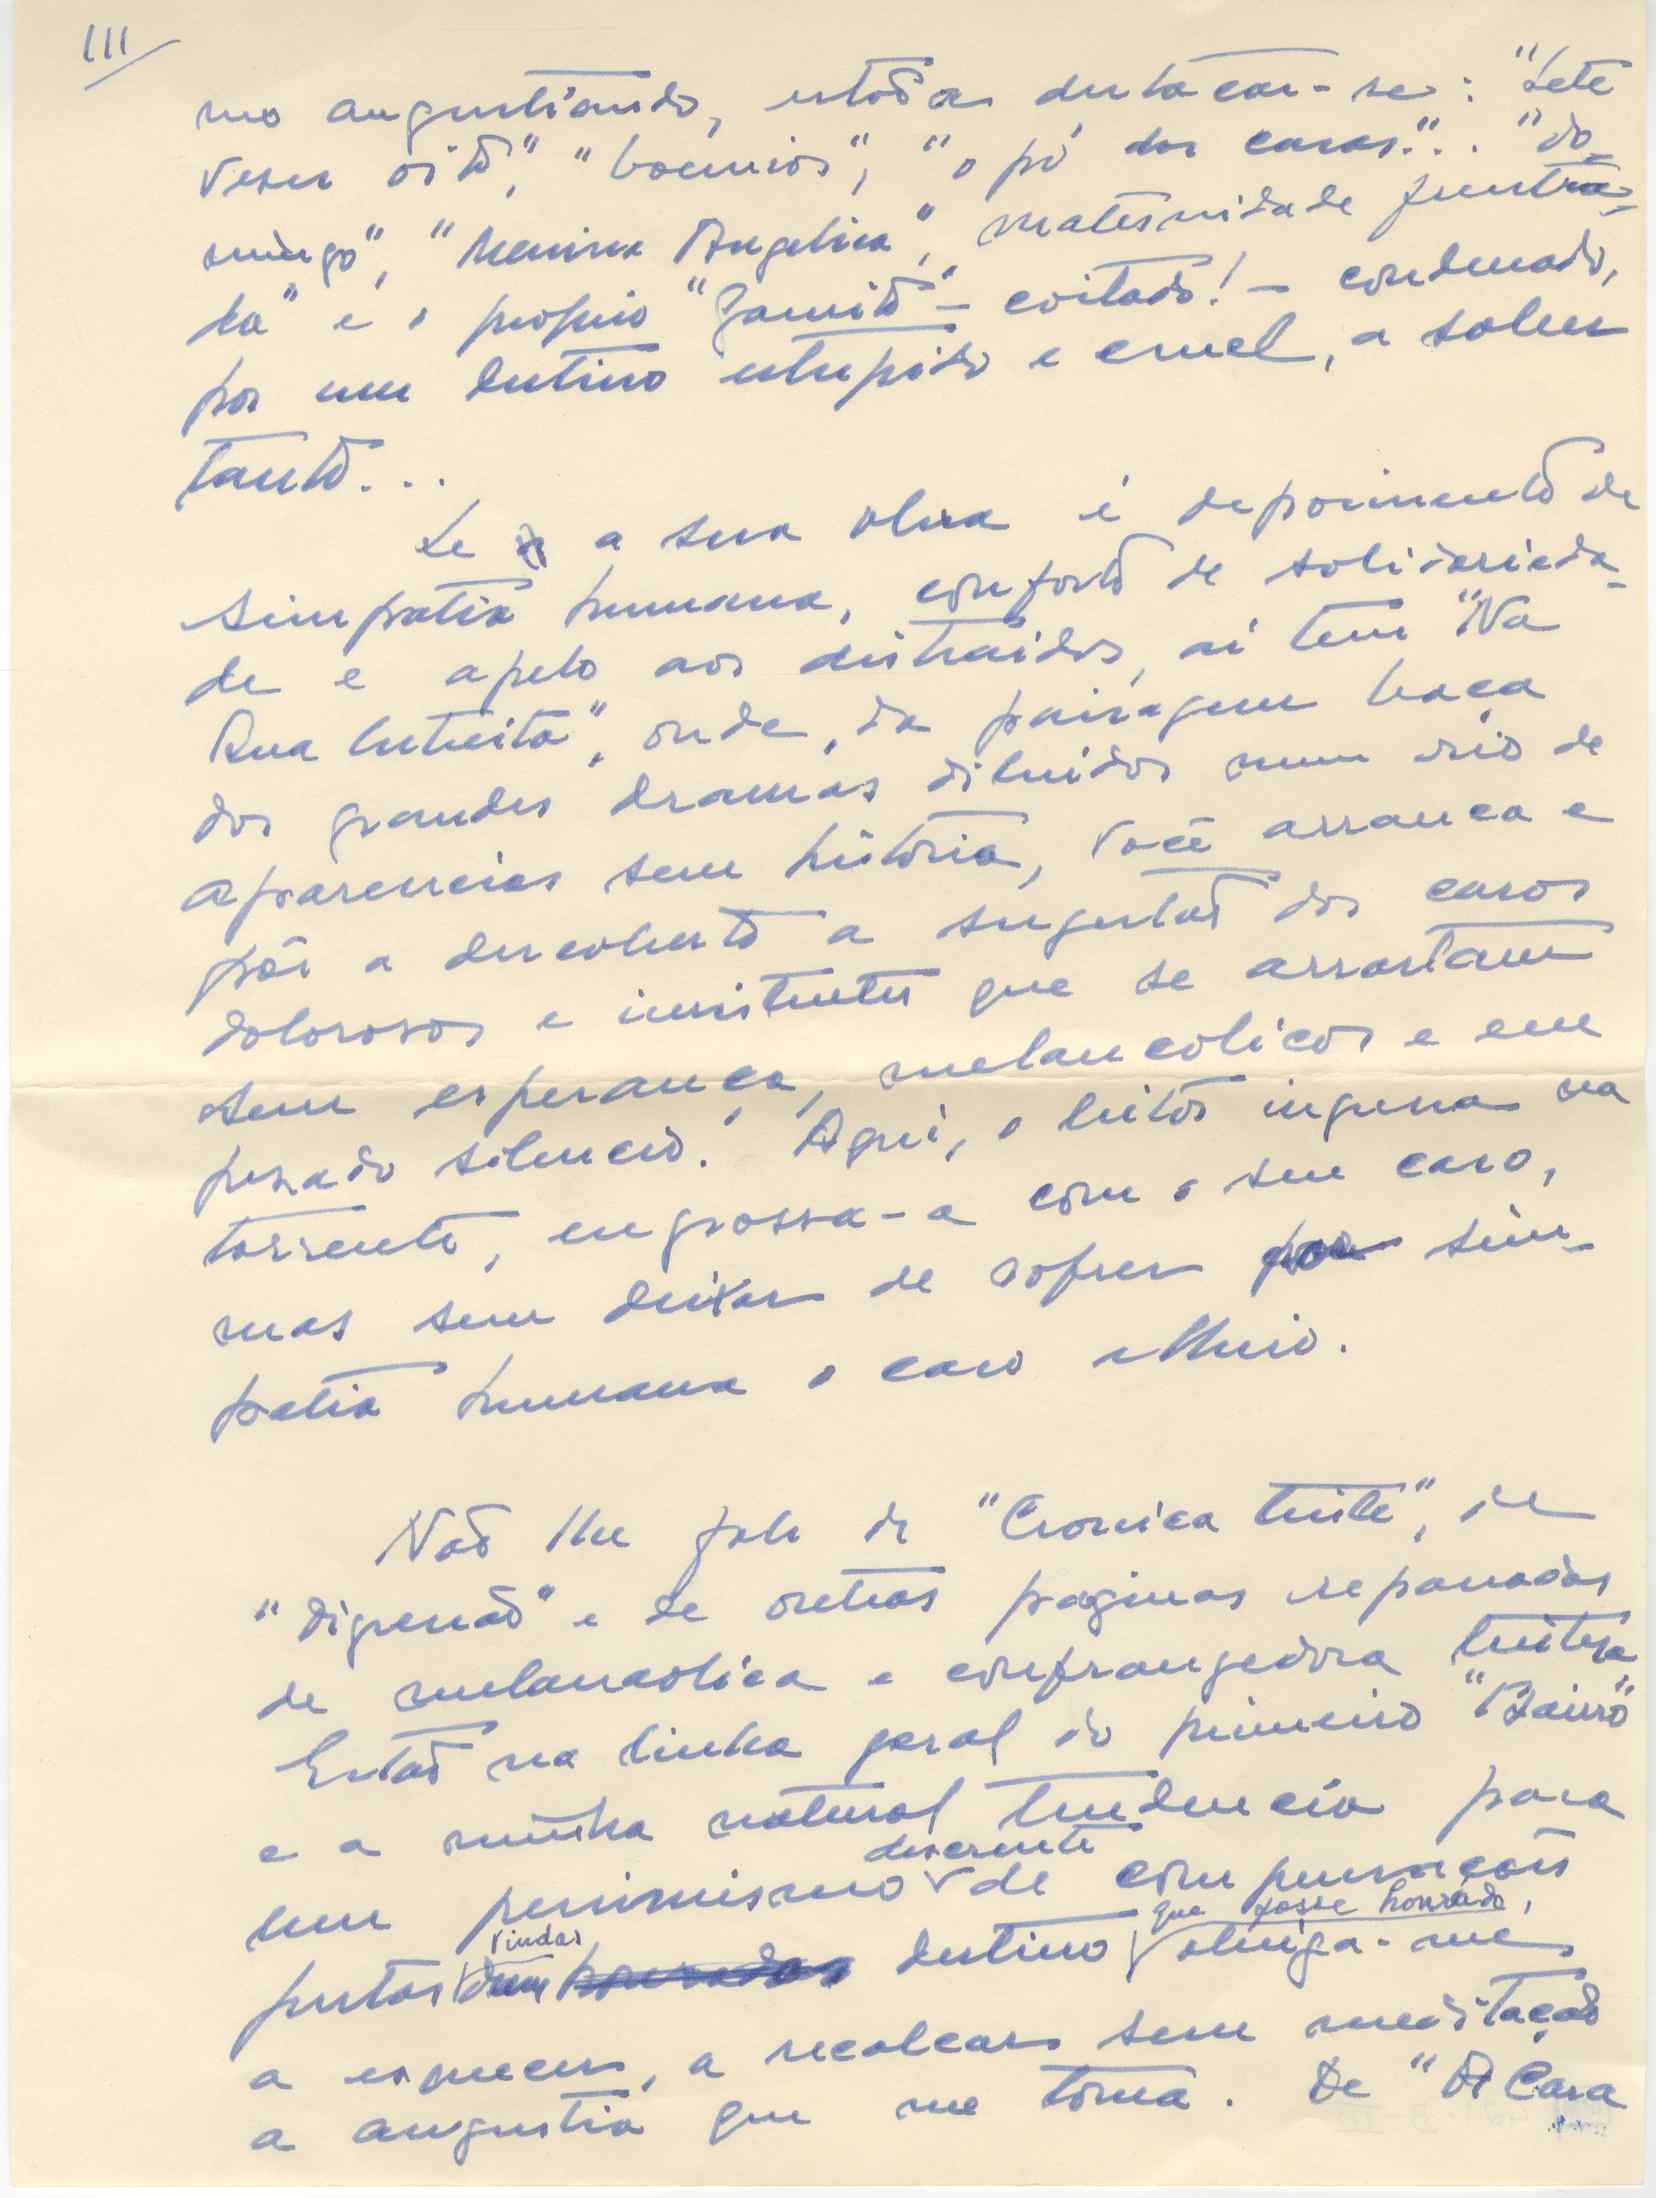 III/
mo angustiando, estão a destacar-se: "Sete
vezes oito", "boémios", "o pó das casas"... "do-
mingo", "Menina Angelica", "maternidade frustra-
da" e o proprio "Zanito" – coitado! – condenado,
por um destino estupido e cruel, a saber
tanto...
Se a sua obra é depoimento de
simpatia humana, conforto de solidarieda-
de e apelo aos distraídos, aí tem "Na
Rua Estreita", onde, da paisagem baça
dos grandes dramas diluidos num rio de
aparencias sem história, você arranca e
põe a descoberto a sugestão dos casos
dolorosos e insistentes que se arrastam
sem esperança, melancolicos e em
pesado silencio. Aqui, o leitor ingressa na
torrente, engrossa-a com o seu caso,
mas sem deixar de sofrer por sim-
patia humana o caso alheio.
Não lhe falo de "Cronica triste", de
"digressão" e de outras paginas repassadas
de melancolica e confrangedora tristeza
Estão na linha geral do primeiro "Bairro"
e a minha natural tendencia para
um pessimismo descrente de compensações
justas vindas dum destino que fosse honrado, obriga-me
a esquecer, a recalcar sem meditação
a angustia que me toma. De "A Casa